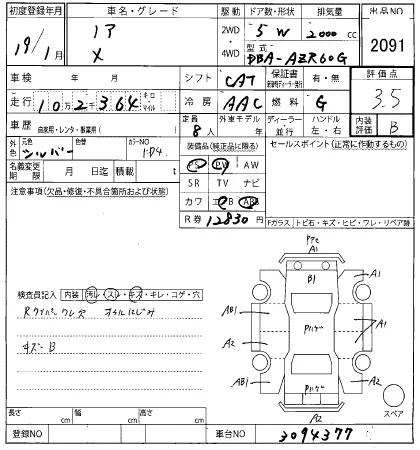 初度登録年月
19/1月
車名・グレード
X
駆動
2WD
4WD
ドア数・形状
5 W
排気量
2000 cc
型式
DBA-AZR60G
出品NO
2091
車検 年 月
シフト
CAT
保証書 有・無
評価点
3.5
走行
10万2千364
キロ
マイル
冷房
AAC
燃料
G
車歴
自家用・レンタ・事業用( )
定員
8人
外車モデル
年
ディーラー
並行
ハンドル
左・右
内装
評価
B
外色
元色
シルバー
色替
カラーNO
1D4
装備品(純正品に限る)
PS PW AW
SR TV ナビ
カワ エB AB
セールスポイント(正常に作動するもの)
名義変更
期限
月 日迄
積載
t
R券
12830円
注意事項(欠品・修復・不具合箇所および状態)
Fガラス
トビ石・キズ・ヒビ・ワレ・リペア跡
検査員記入
内装
汚レ・スレ・キズ・キレ・コゲ・穴
オイルにじみ
キズ-B
A1
B1
A1
AB1
A1
A2
AB1
A2
A2
スペア
長さ cm
幅 cm
高さ cm
登録NO
車台NO
3094377